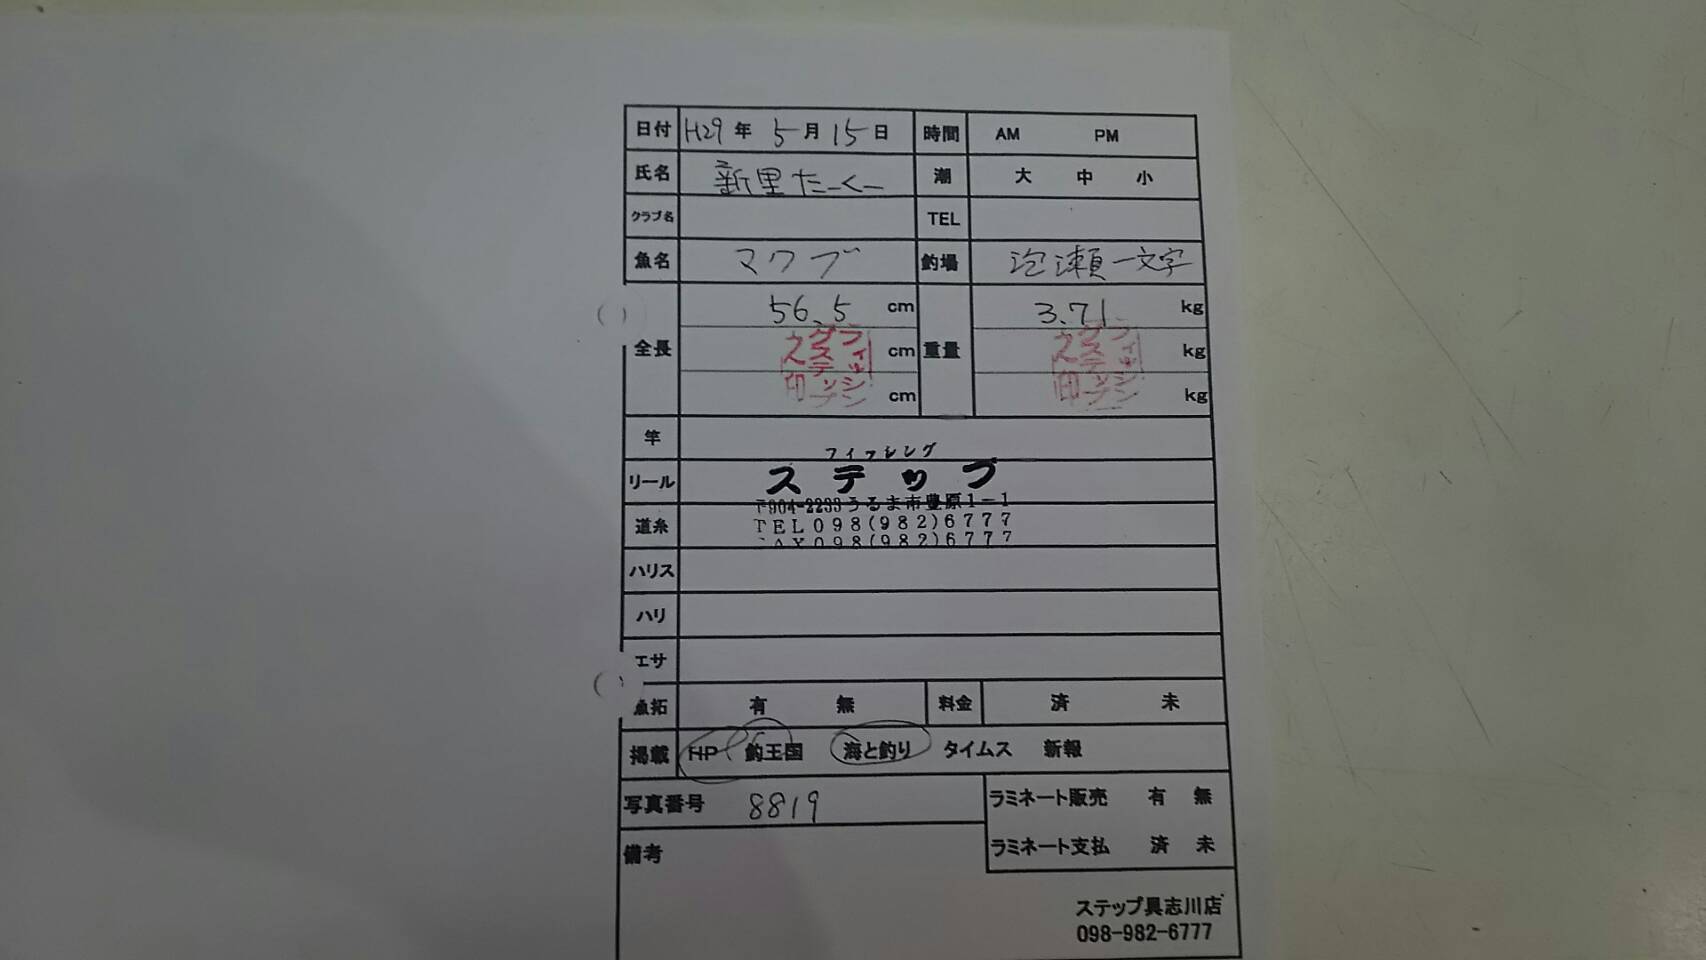 日付 H29年 5月15日 時間 AM PM
氏名 新里たーくー 潮 大 中 小
クラブ名 TEL
魚名 マクブ 釣場 泡瀬一文字
56.5 cm 3.71 kg
全長 cm 重量 kg
cm kg
フィッシングステップ之印 フィッシングステップ之印
竿
フィッシング
リール ステップ
〒904-2233うるま市豊原1-1
道糸 TEL098(982)6777
FAX098(982)6777
ハリス
ハリ
エサ
魚拓 有 無 料金 済 未
掲載 HP 釣王国 海と釣り タイムス 新報
写真番号 8819 ラミネート販売 有 無
備考 ラミネート支払 済 未
ステップ具志川店
098-982-6777